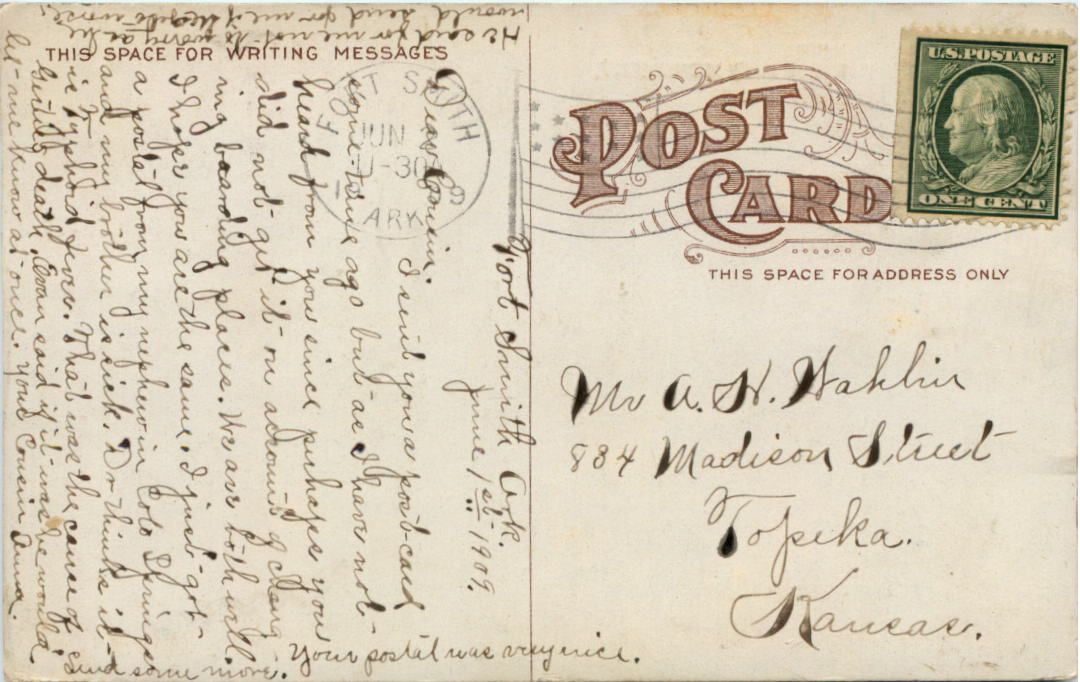 THIS SPACE FOR WRITING MESSAGES
POST
CARD
THIS SPACE FOR ADDRESS ONLY
U.S. POSTAGE
ONE CENT
FT SMITH
JUN
-30
ARK
Mr A. H. Wahlin
834 Madison Street
Topeka.
Kansas.
Fort Smith Ark.
June 1st 1909.
Dear Cousin,
I sent you a post-card
some time ago but as I have not-
heard from you since perhaps you
did not get it on account of chang-
ing boarding places. We are both well.
I hope you are the same. I just-got-
a postal from my nephew in Colo Springs
and my brother is sick. Dr thinks it-
is Typhoid Fever. That was the cause of
Gertie's death. Evan said if it was he would
let-me know at once. Your Cousin Anna.
He said for me not to worry as he
would send for me if
Your postal was very nice.
Send some more.